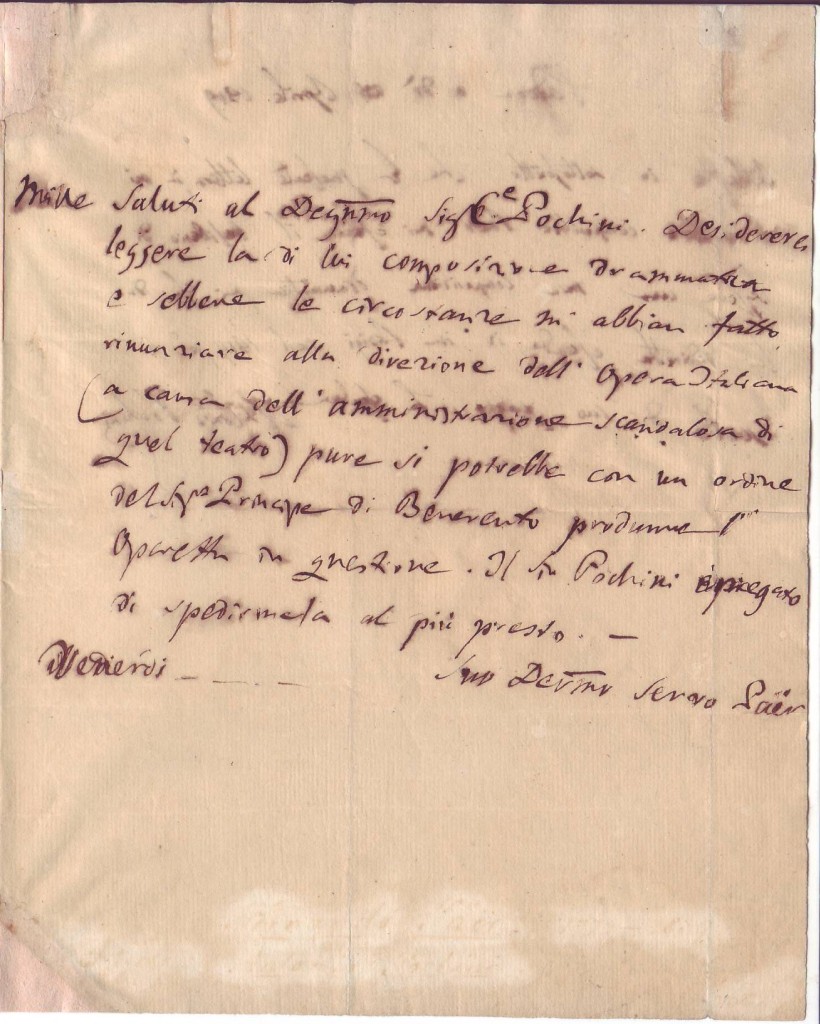 Mille Saluti al Degnmo Sigr Ce Pochini. Desidererei
leggere la di lui composizione drammatica
e sebbene le circostanze m' abbian fatto
rinunziare alla direzione dell' Opera Italiana
(a causa dell' amministrazione scandalosa di
quel teatro) pure si potrebbe con un ordine
del Sigr Principe di Benevento produrre l'
Operetta in questione. Il Sigr Pochini è pregato
di spedirmela al più presto. —
Venerdi - - - - Suo Devmo Servo Paër